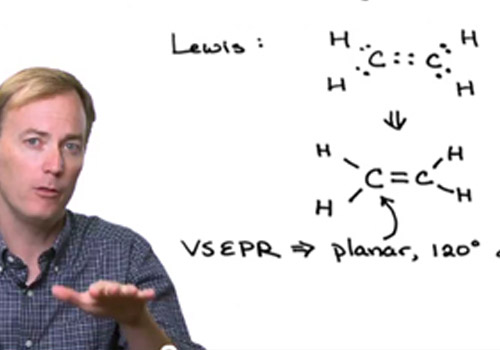 Lewis :
H H
C :: C
H H
⇓
H H
C = C
H H
VSEPR ⇒ planar, 120°